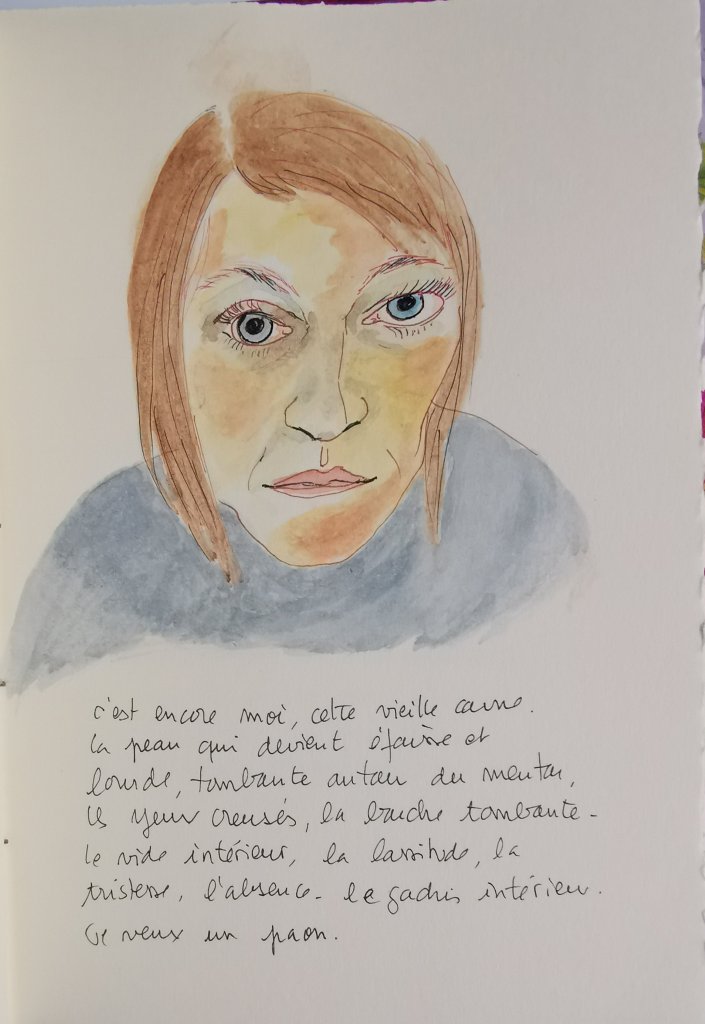 c'est encore moi, cette vieille carne.
la peau qui devient épaisse et
lourde, tombante autour du menton,
les yeux creusés, la bouche tombante -
le vide intérieur, la lassitude, la
tristesse, l'absence - le gachis intérieur.
Je veux un paon.